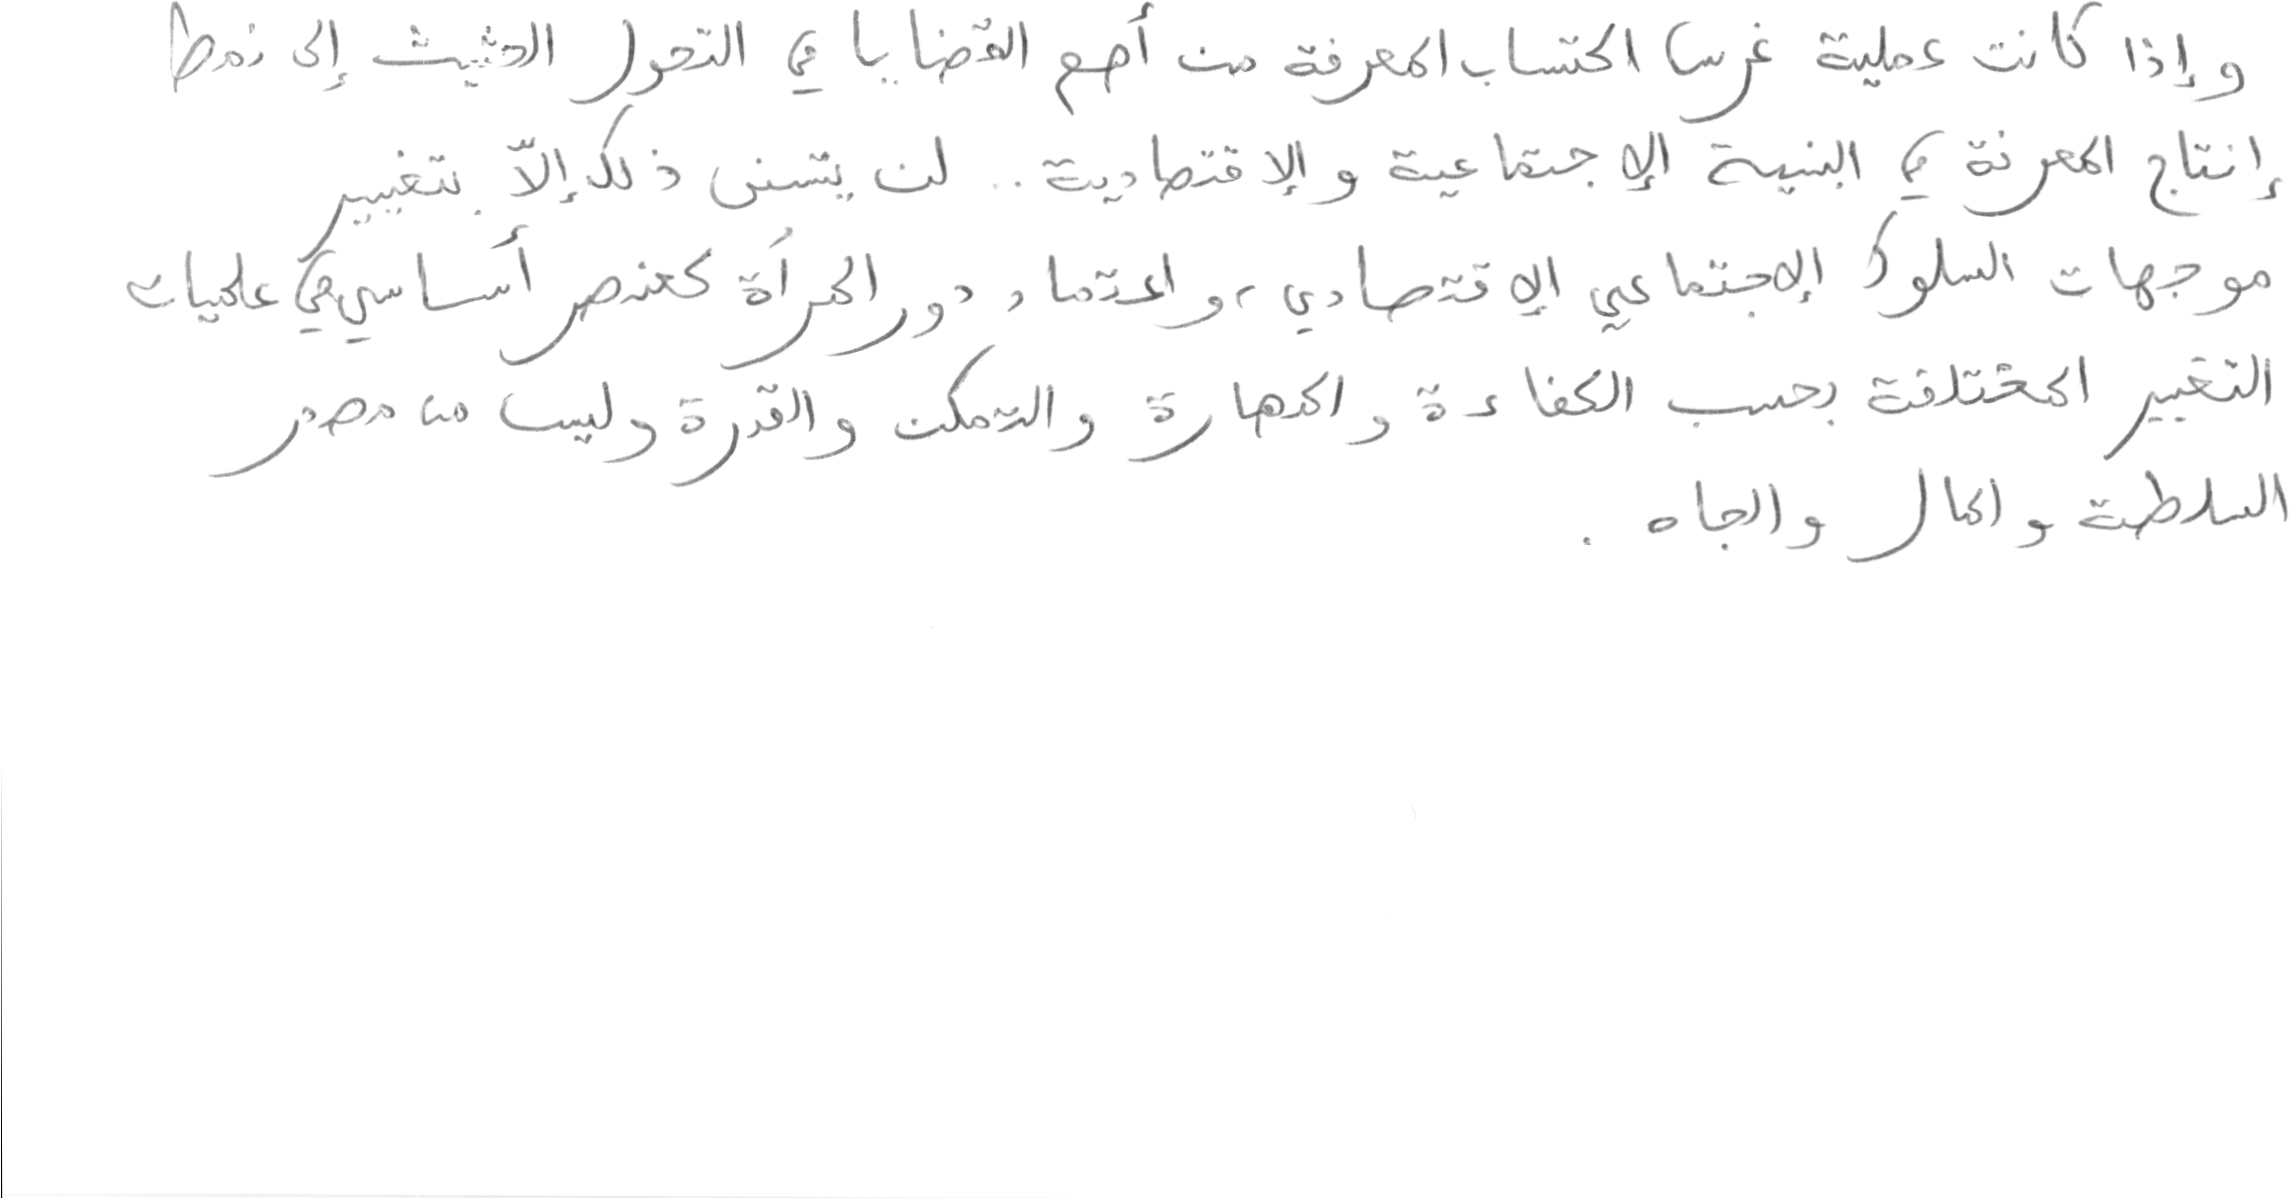 وإذا كانت عملية غرس اكتساب المعرفة من أهم القضايا في التحول الحثيث إلى نمط
إنتاج المعرفة في البنية الإجتماعية والإقتصادية .. لن يتسنى ذلك إلاّ بتغيير
موجهات السلوك الإجتماعي الإقتصادي، واعتماد دور المرأة كعنصر أساسي في عمليات
التغيير المختلفة بحسب الكفاءة والمهارة والتمكن والقدرة وليس من مصدر
السلطة والمال والجاه .